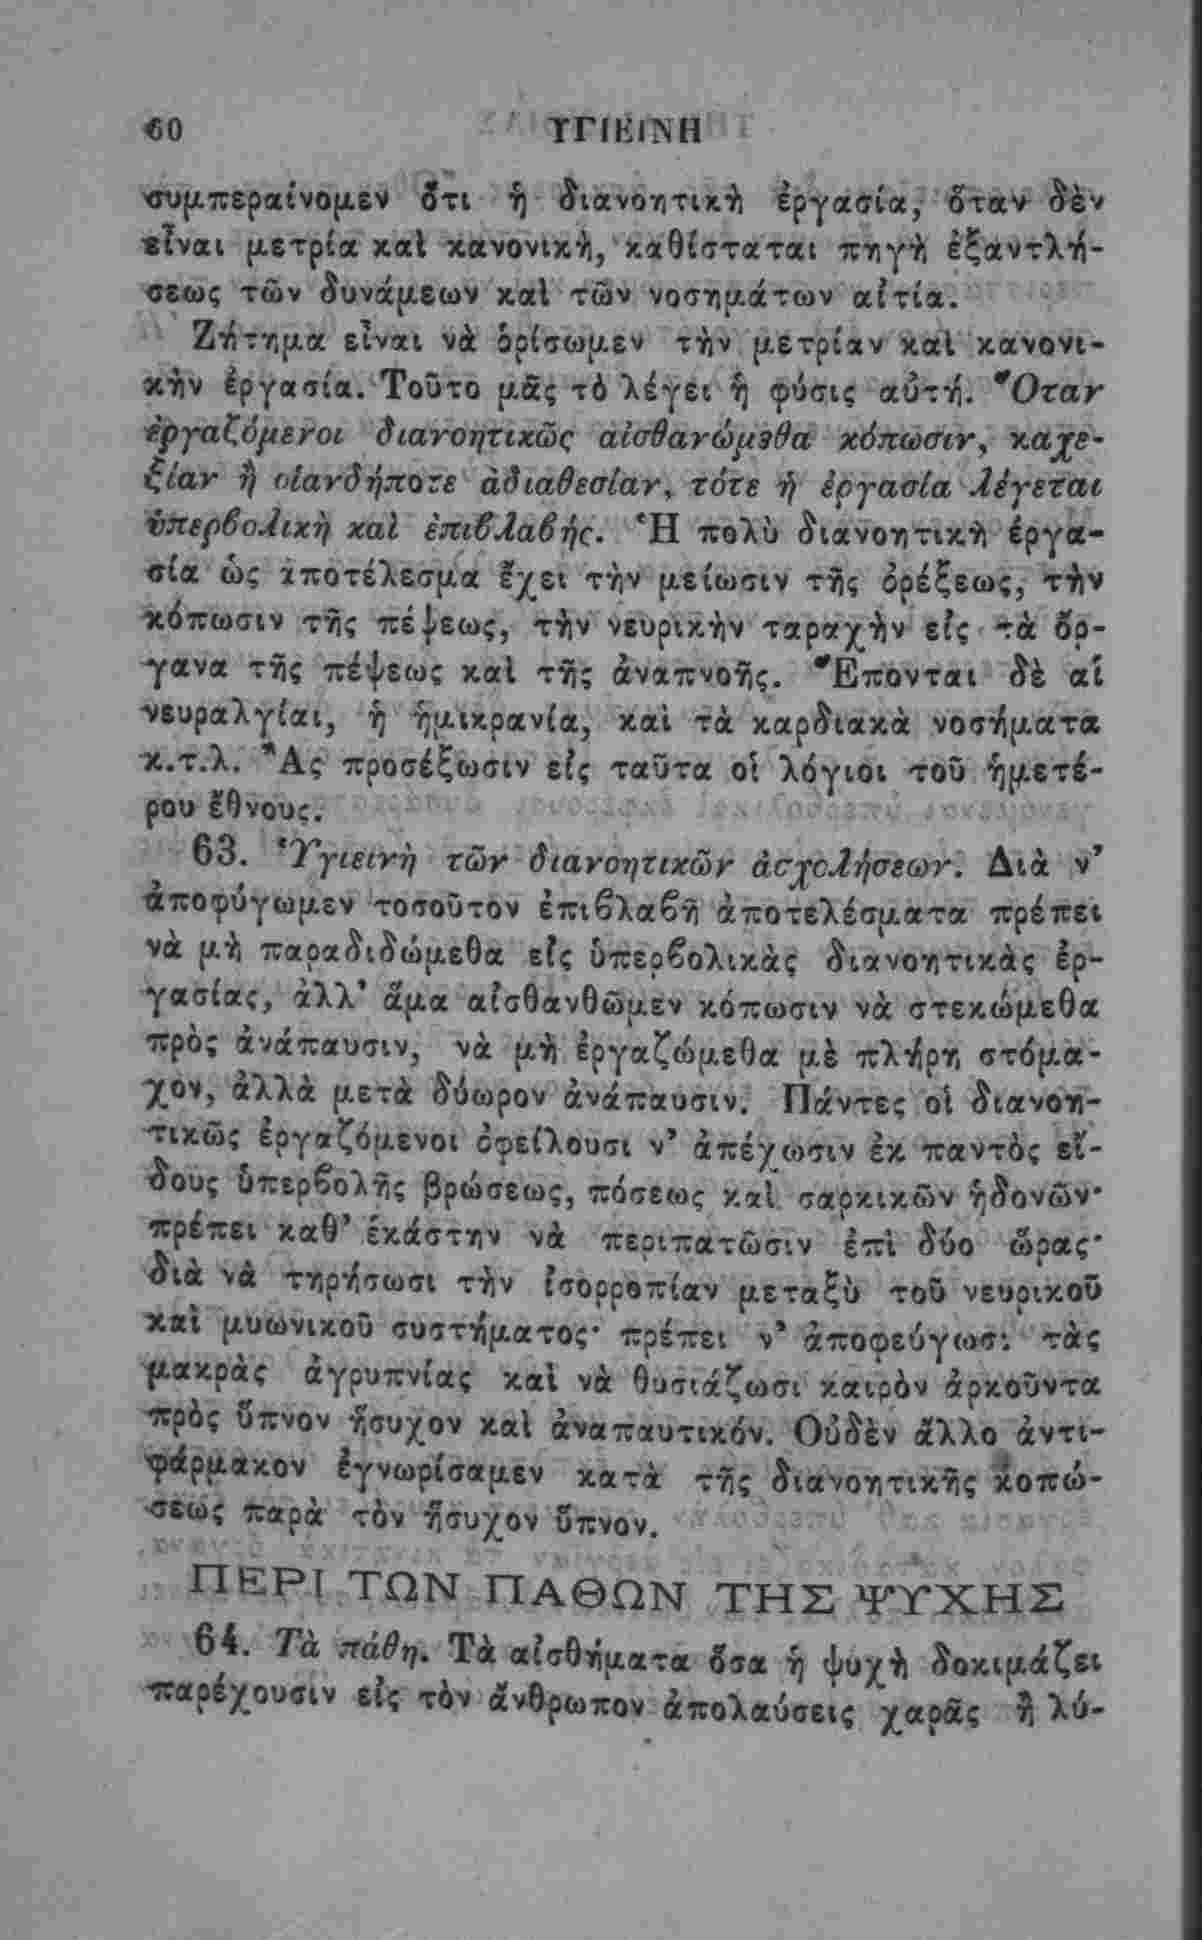 60 ΥΓΙΕΙΝΗ
συμπεραίνομεν ὅτι ἡ διανοητικὴ ἐργασία, ὅταν δὲν
εἶναι μετρία καὶ κανονικὴ, καθίσταται πηγὴ ἐξαντλή-
σεως τῶν δυνάμεων καὶ τῶν νοσημάτων αἰτία.
Ζήτημα εἶναι νὰ ὁρίσωμεν τὴν μετρίαν καὶ κανονι-
κὴν ἐργασία. Τοῦτο μᾶς τὸ λέγει ἡ φύσις αὐτή. Ὅταν
ἐργαζόμενοι διανοητικῶς αἰσθανώμεθα κόπωσιν, καχε-
ξίαν ἢ οἱανδήποτε ἀδιαθεσίαν, τότε ἡ ἐργασία λέγεται
ὑπερβολικὴ καὶ ἐπιβλαβής. Ἡ πολὺ διανοητικὴ ἐργα-
σία ὡς ἀποτέλεσμα ἔχει τὴν μείωσιν τῆς ὀρέξεως, τὴν
κόπωσιν τῆς πέψεως, τὴν νευρικὴν ταραχὴν εἰς τὰ ὄρ-
γανα τῆς πέψεως καὶ τῆς ἀναπνοῆς. Ἕπονται δὲ αἱ
νευραλγίαι, ἡ ἡμικρανία, καὶ τὰ καρδιακὰ νοσήματα
κ.τ.λ. Ἂς προσέξωσιν εἰς ταῦτα οἱ λόγιοι τοῦ ἡμετέ-
ρου ἔθνους.
63. Ὑγιεινὴ τῶν διανοητικῶν ἀσχολήσεων. Διὰ ν'
ἀποφύγωμεν τοσοῦτον ἐπιβλαβῆ ἀποτελέσματα πρέπει
νὰ μὴ παραδιδώμεθα εἰς ὑπερβολικὰς διανοητικὰς ἐρ-
γασίας, ἀλλ' ἅμα αἰσθανθῶμεν κόπωσιν νὰ στεκώμεθα
πρὸς ἀνάπαυσιν, νὰ μὴ ἐργαζώμεθα μὲ πλήρη στόμα-
χον, ἀλλὰ μετὰ δύωρον ἀνάπαυσιν. Πάντες οἱ διανοη-
τικῶς ἐργαζόμενοι ὀφείλουσι ν' ἀπέχωσιν ἐκ παντὸς εἴ-
δους ὑπερβολῆς βρώσεως, πόσεως καὶ σαρκικῶν ἡδονῶν·
πρέπει καθ' ἑκάστην νὰ περιπατῶσιν ἐπὶ δύο ὥρας·
διὰ νὰ τηρήσωσι τὴν ἰσορροπίαν μεταξὺ τοῦ νευρικοῦ
καὶ μυωνικοῦ συστήματος· πρέπει ν' ἀποφεύγωσι τὰς
μακρὰς ἀγρυπνίας καὶ νὰ θυσιάζωσι καιρὸν ἀρκοῦντα
πρὸς ὕπνον ἥσυχον καὶ ἀναπαυτικόν. Οὐδὲν ἄλλο ἀντι-
φάρμακον ἐγνωρίσαμεν κατὰ τῆς διανοητικῆς κοπώ-
σεως παρὰ τὸν ἥσυχον ὕπνον.
ΠΕΡΙ ΤΩΝ ΠΑΘΩΝ ΤΗΣ ΨΥΧΗΣ
64. Τὰ πάθη. Τὰ αἰσθήματα ὅσα ἡ ψυχὴ δοκιμάζει
παρέχουσιν εἰς τὸν ἄνθρωπον ἀπολαύσεις χαρᾶς ἢ λύ-